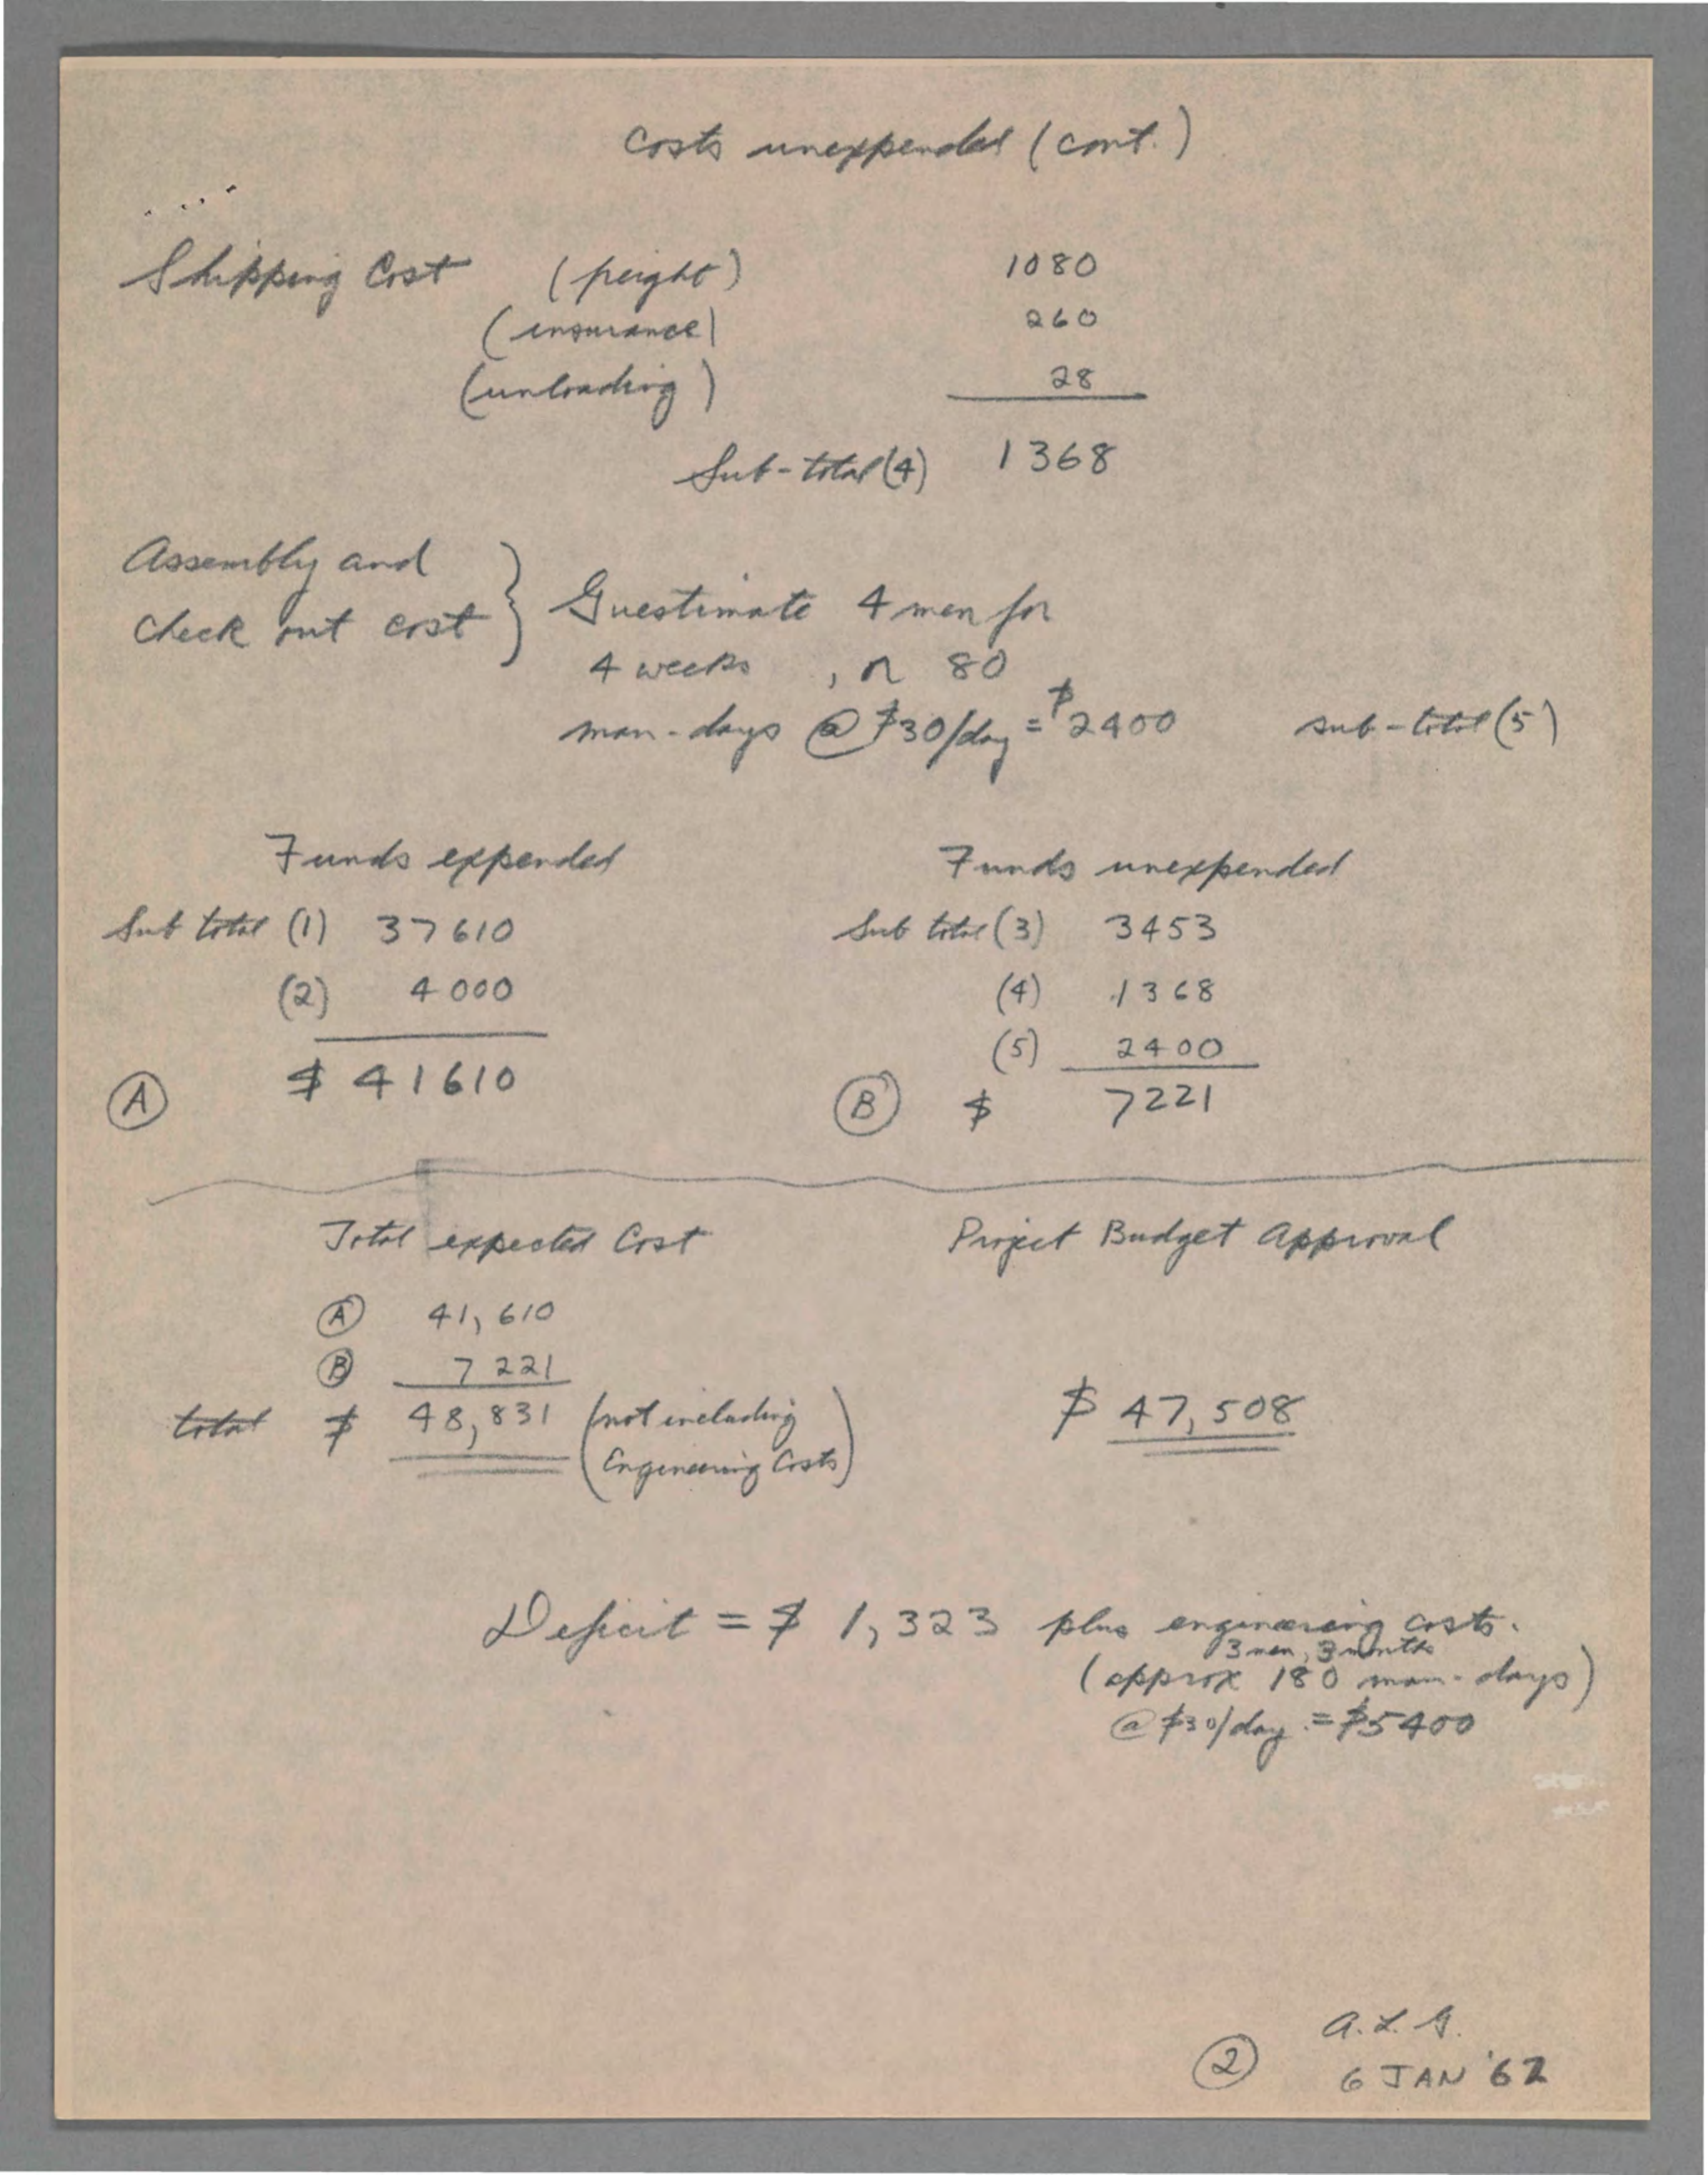 Costs unexpended (cont.)
Shipping Cost (freight) 1080
(insurance) 260
(unloading) 28
Sub-total (4) 1368
Assembly and
Check out cost } Guestimate 4 men for
4 weeks, or 80
man-days @ $30/day = $2400 sub-total (5)
Funds expended
Sub total (1) 37610
(2) 4000
(A) $ 41610
Funds unexpended
Sub total (3) 3453
(4) 1368
(5) 2400
(B) $ 7221
Total expected Cost
(A) 41,610
(B) 7221
total $ 48,831 (not including
Engineering Costs)
Project Budget Approval
$ 47,508
Deficit = $ 1,323 plus engineering costs.
3 men, 3 months
(approx 180 man-days)
@ $30/day = $5400
A. L. G.
(2) 6 JAN '62